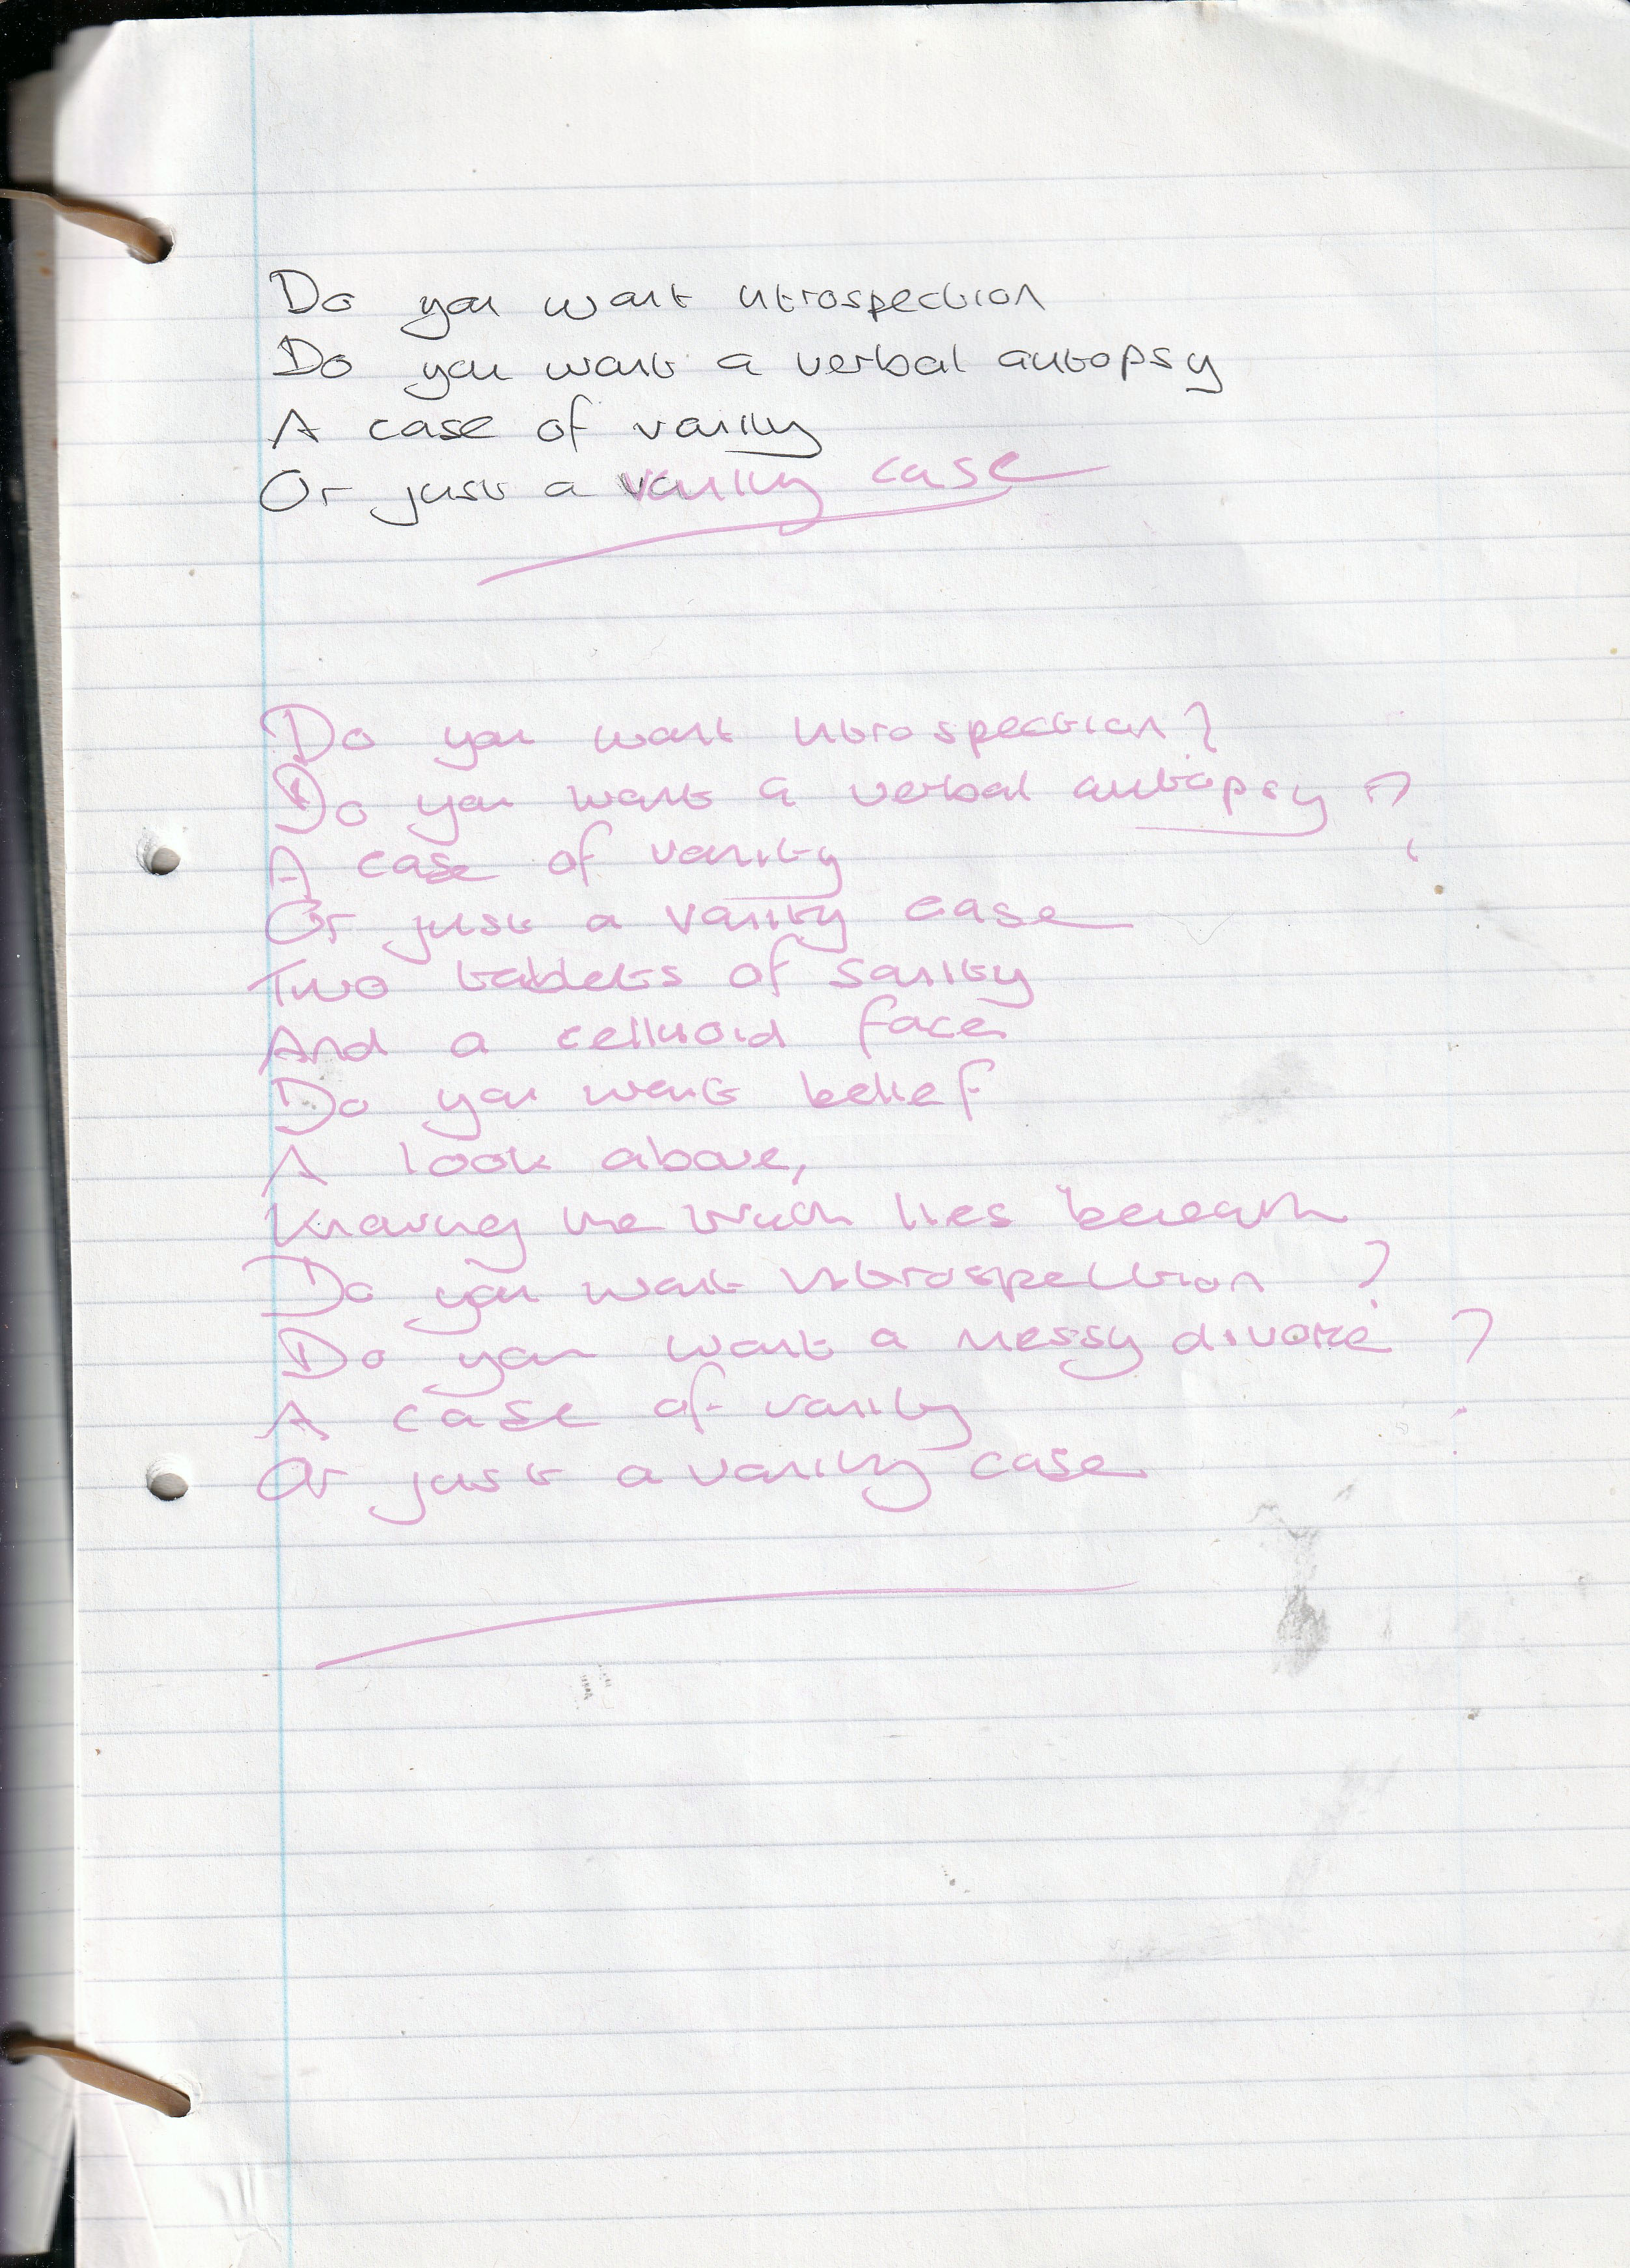 Do you want introspection
Do you want a verbal autopsy
A case of vanity
Or just a vanity case
Do you want introspection?
Do you want a verbal autopsy?
A case of vanity
Or just a vanity case
Two tablets of sanity
And a celluloid face
Do you want belief
A look above,
Knowing the truth lies beneath
Do you want introspection?
Do you want a messy divorce?
A case of vanity
Or just a vanity case